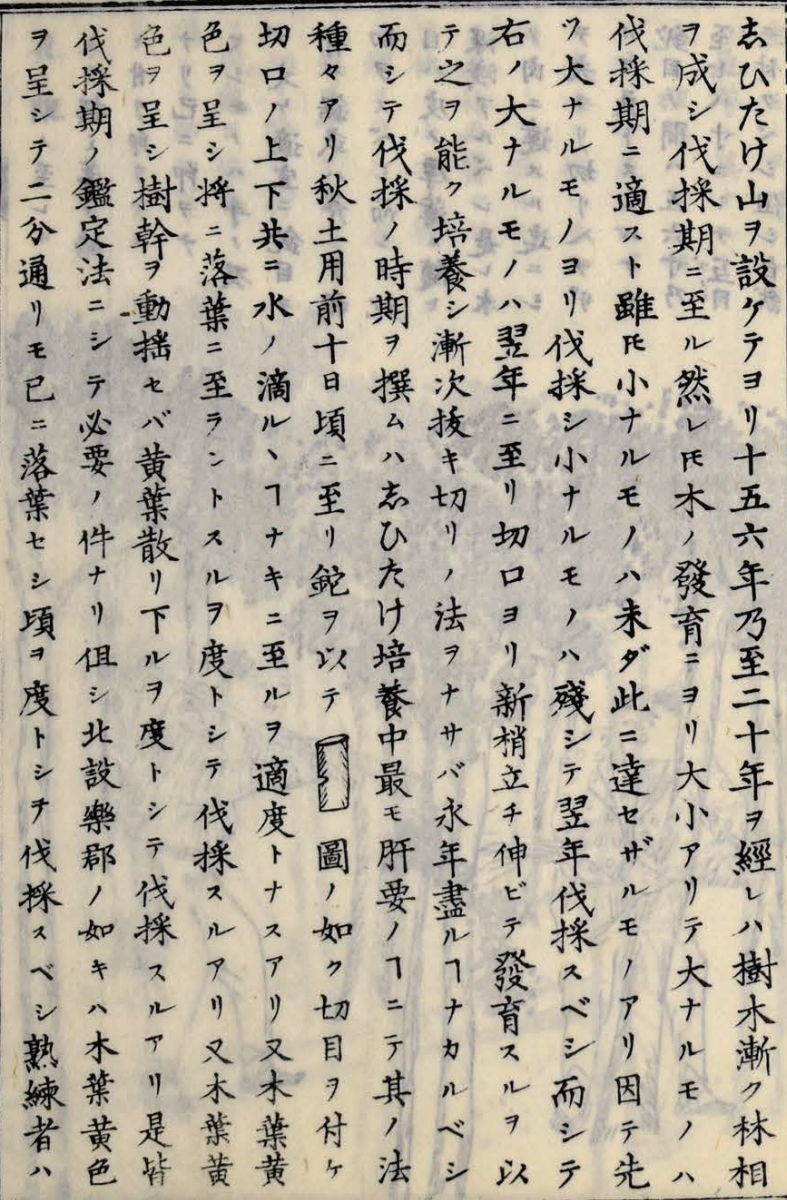 志ひたけ山ヲ設ケテヨリ十五六年乃至二十年ヲ經レハ樹木漸ク林相
ヲ成シ伐採期ニ至ル然レ𪜈木ノ發育ニヨリ大小アリテ大ナルモノハ
伐採期ニ適スト雖𪜈小ナルモノハ未ダ此ニ達セザルモノアリ因テ先
ツ大ナルモノヨリ伐採シ小ナルモノハ殘シテ翌年伐採スベシ而シテ
右ノ大ナルモノハ翌年ニ至リ切口ヨリ新梢立チ伸ビテ發育スルヲ以
テ之ヲ能ク培養シ漸次拔キ切リノ法ヲナサバ永年盡ルヿナカルベシ
而シテ伐採ノ時期ヲ撰ムハ志ひたけ培養中最モ肝要ノヿニテ其ノ法
種々アリ秋土用前十日頃ニ至リ鉈ヲ以テ圖ノ如ク切目ヲ付ケ
切口ノ上下共ニ水ノ滴ルヽヿナキニ至ルヲ適度トナスアリ又木葉黄
色ヲ呈シ將ニ落葉ニ至ラントスルヲ度トシテ伐採スルアリ又木葉黄
色ヲ呈シ樹幹ヲ動揺セバ黄葉散リ下ルヲ度トシテ伐採スルアリ是皆
伐採期ノ鑑定法ニシテ必要ノ件ナリ但シ北設樂郡ノ如キハ木葉黄色
ヲ呈シテ二分通リモ已ニ落葉セシ頃ヲ度トシテ伐採スベシ熟練者ハ